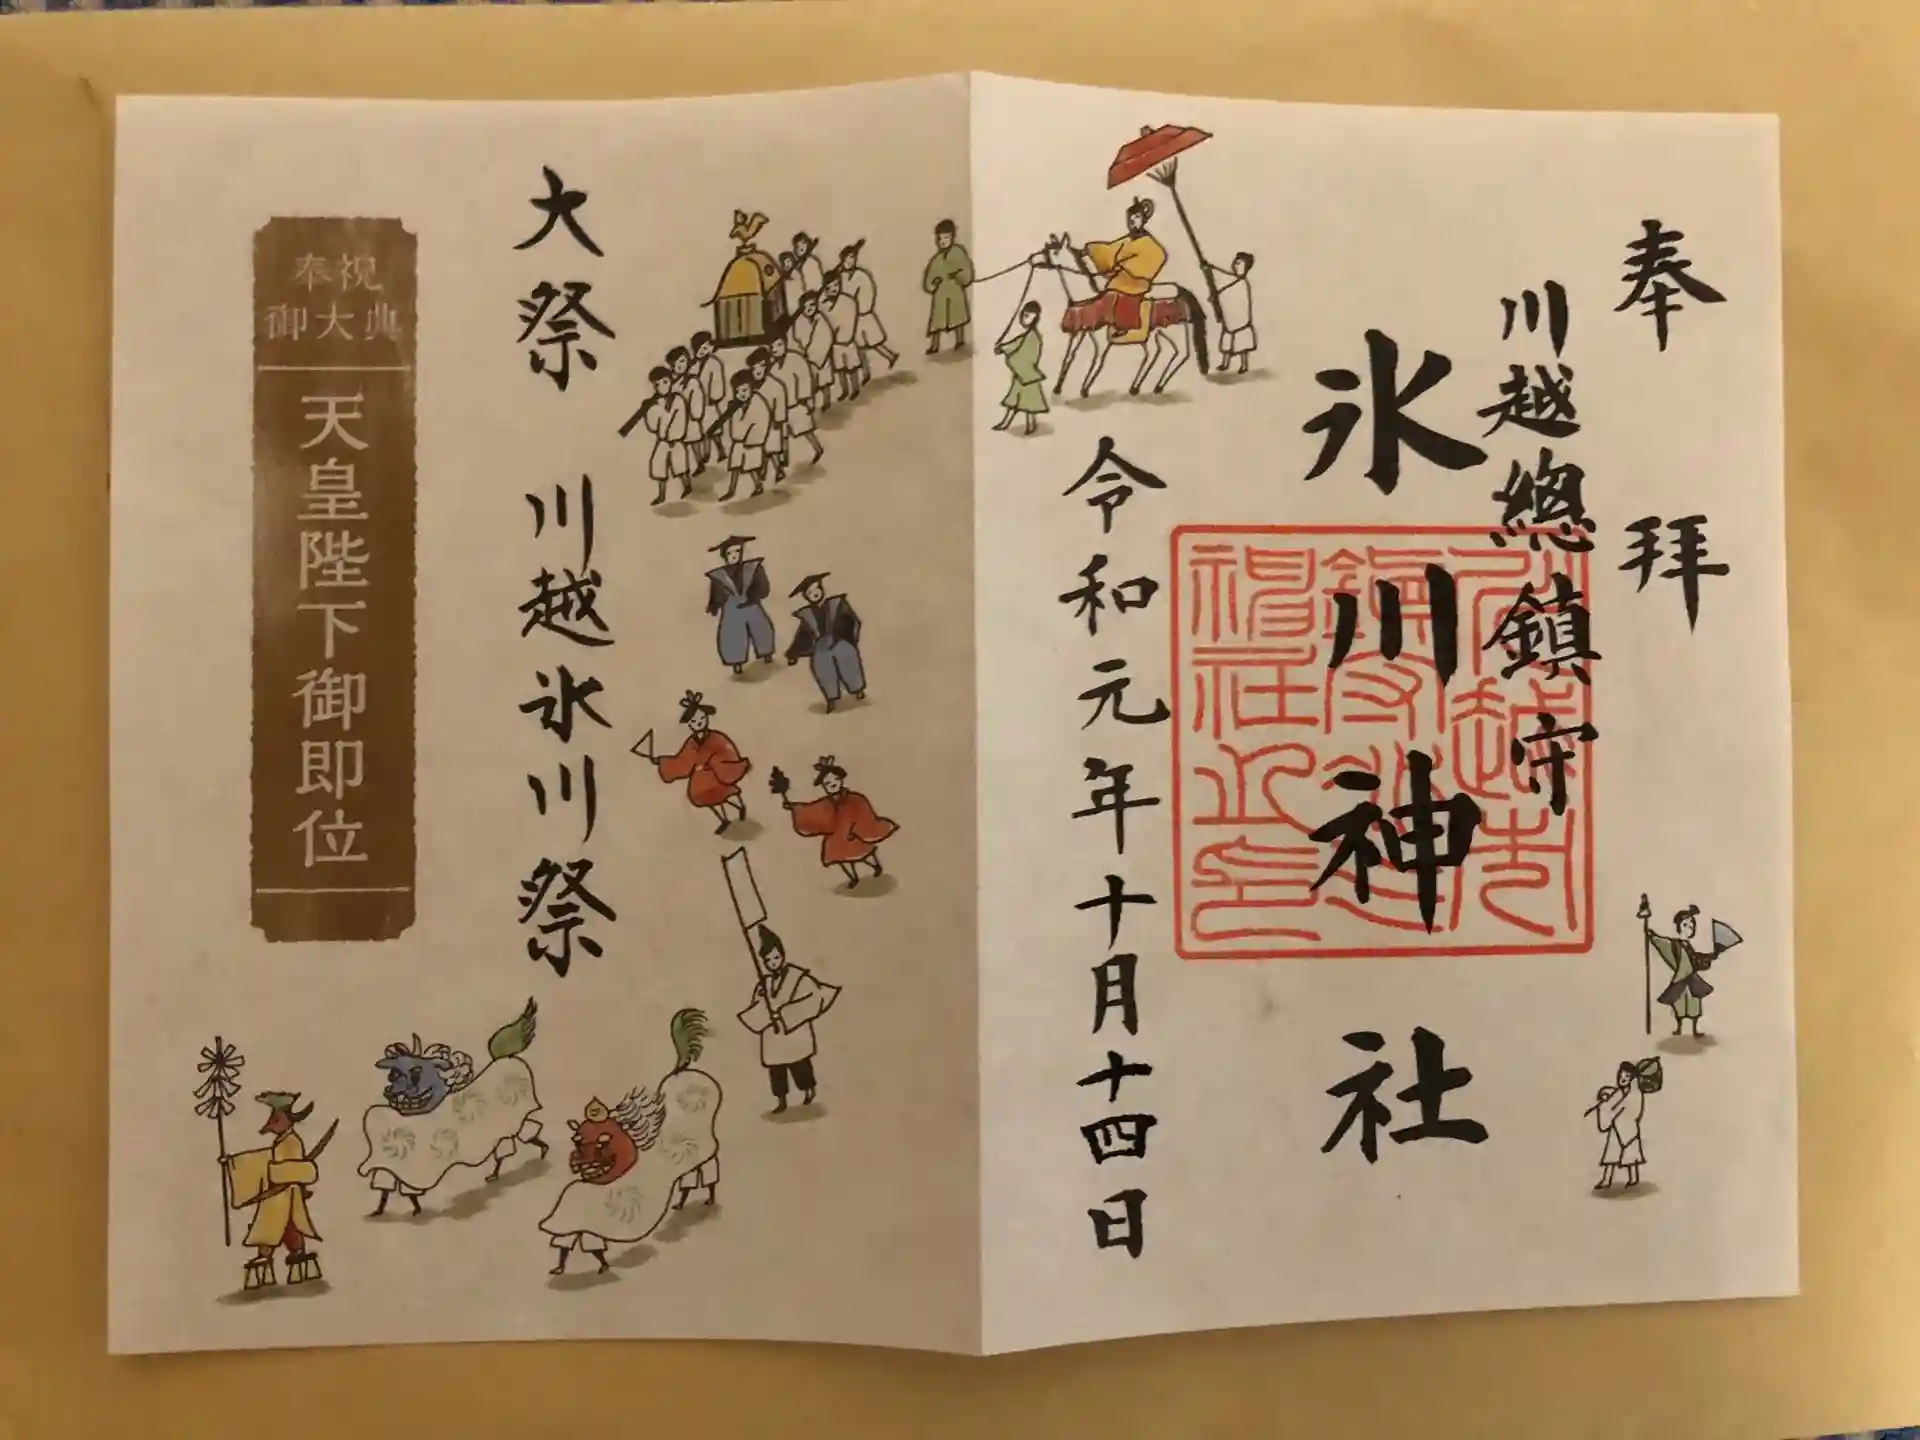 奉拝
川越總鎮守
氷川神社
令和元年十月十四日
大祭 川越氷川祭
奉祝
御大典
天皇陛下御即位